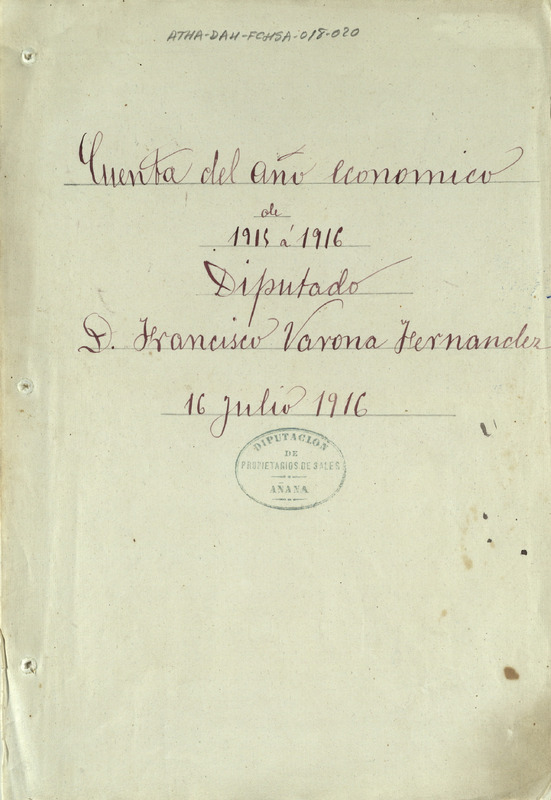 ATHA-DAH-FCHSA-018-020
Cuenta del año economico
de
1915 á 1916
Diputado
D. Francisco Varona Fernandez
16 julio 1916
DIPUTACIÓN
DE
PROPIETARIOS DE SALES
AÑANA